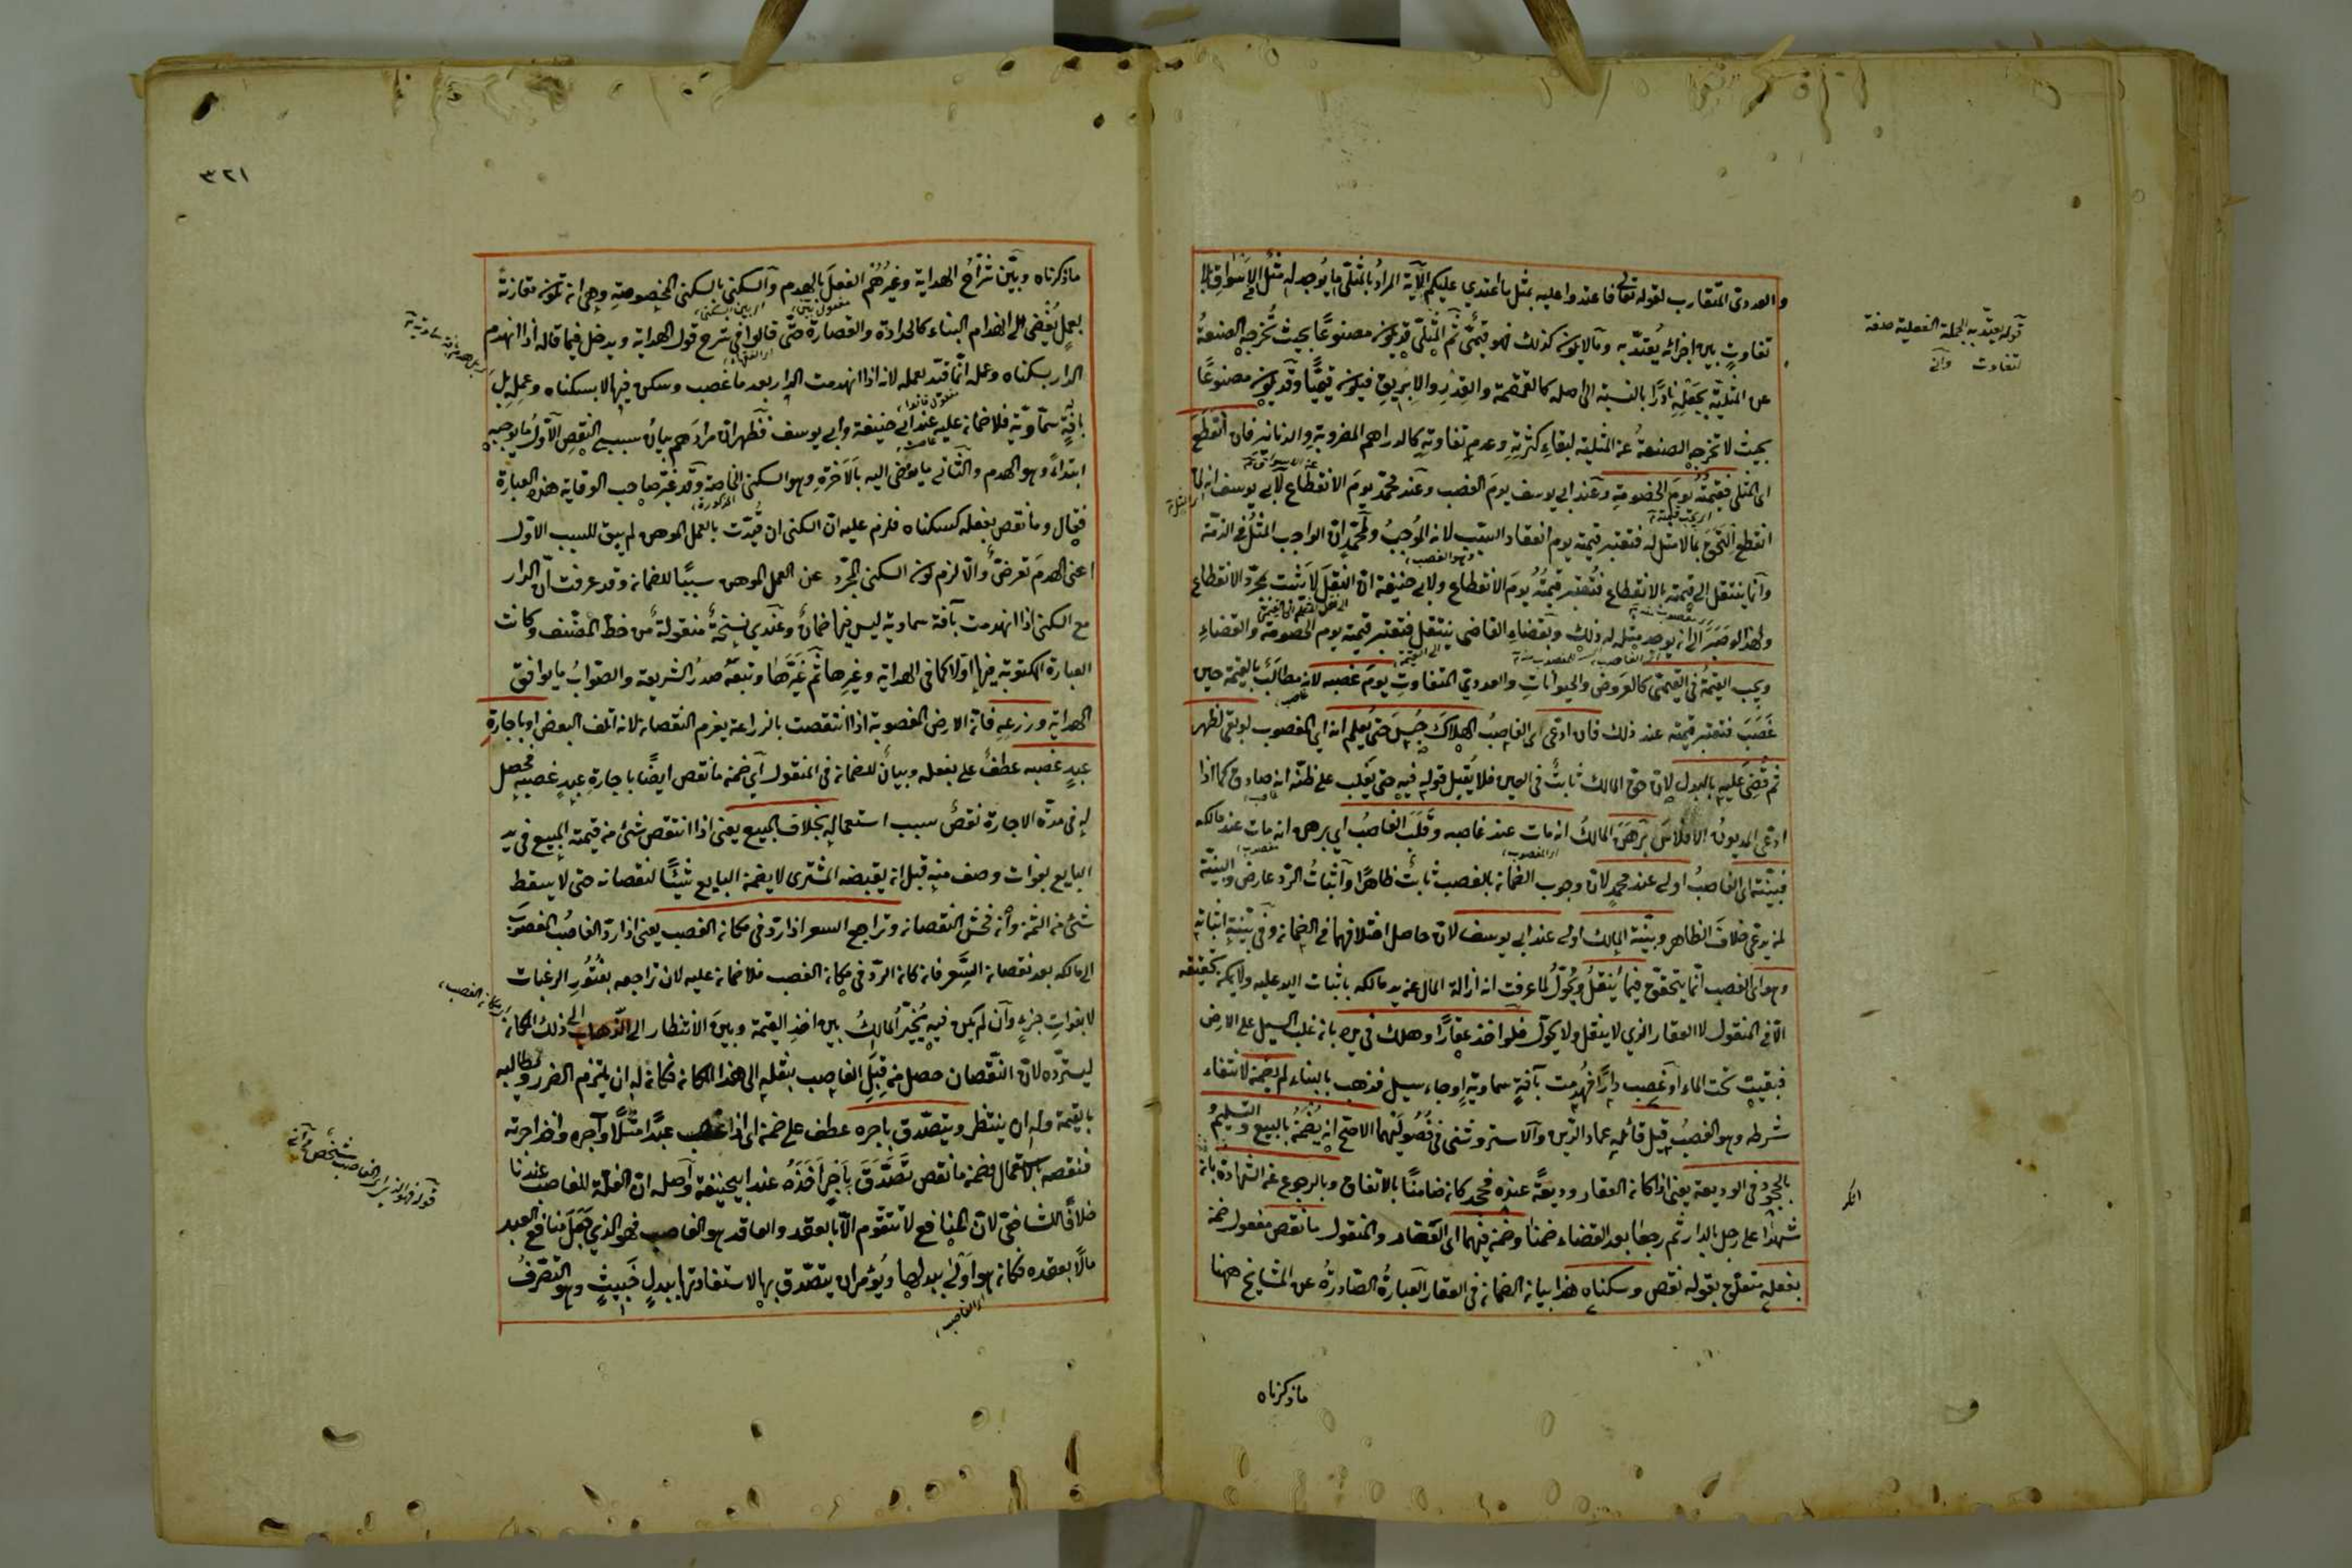 والعددي المتقارب لقوله تعالى فاعتدوا عليه بمثل ما اعتدى عليكم الآية المراد بالمثلي ما يوجد له مثل في الاسواق بلا
تفاوت بين اجزائه يعتد به وما لا يكون كذلك فهو قيمي ثم المثلي قد يكون مصنوعا بحيث تخرجه الصنعة
عن المثلية بجعله نادرا بالنسبة الى اصله كالقمقمة والقدر والابريق فيكون قيميا وقد يكون مصنوعا
بحيث لا تخرجه الصنعة عن المثلية لبقاء كثرته وعدم تفاوته كالدراهم المضروبة والدنانير فان انقطع
اي المثلي فقيمته يوم الخصومة وعند ابي يوسف يوم الغصب وعند محمد يوم الانقطاع لابي يوسف انه لما
انقطع التحق بما لا مثل له فتعتبر قيمته يوم انعقاد السبب لانه الموجب ولمحمد ان الواجب المثل في الذمة
وانما ينتقل الى قيمته بالانقطاع فتعتبر قيمته يوم الانقطاع ولابي حنيفة ان النقل لا يثبت بمجرد الانقطاع
ولهذا لو صبر الى ان يوجد مثله له ذلك وبقضاء القاضي ينتقل فتعتبر قيمته يوم الخصومة والقضاء
ويجب القيمة في القيمي كالعروض والحيوانات والعددي المتفاوت يوم غصبه لانه مطالب بالقيمة حين
غصب فتعتبر قيمته عند ذلك فان ادعى اي الغاصب الهلاك حبس حتى يعلم انه اي المغصوب لو بقي لظهر
ثم قضي عليه بالبدل لان حق المالك ثابت في العين فلا يقبل قوله فيه حتى يغلب على ظنه انه صادق كما اذا
ادعى المديون الافلاس برهن المالك انه مات عند غاصبه وقلب الغاصب اي برهن انه مات عند مالكه
فبينته اي الغاصب اولى عند محمد لان وجوب الضمان بالغصب ثابت ظاهرا واثبات الرد عارض والبينة
لمن يدعي خلاف الظاهر وبينة المالك اولى عند ابي يوسف لان حاصل اختلافهما في الضمان وفي بينته اثباته
وهو اي الغصب انما يتحقق فيما ينقل ويحول لما عرفت انه ازالة المال عن يد مالكه باثبات اليد عليه ولا يمكن تحقيقه
الا في المنقول لا العقار الذي لا ينقل ولا يحول فلو اخذ عقارا وهلك في يده بان غلب السيل على الارض
فبقيت تحت الماء او غصب دارا فهدمت بآفة سماوية او جاء سيل فذهب بالبناء لم يضمن لانتفاء
شرطه وهو الغصب قيل قائله عماد الدين والاستروشني في فصوليهما الاصح انه يضمن بالبيع والتسليم
بالجحود في الوديعة يعني اذا كان العقار وديعة عنده فجحد كان ضامنا بالاتفاق وبالرجوع عن الشهادة بان
شهدا على رجل بالدار ثم رجعا بعد القضاء ضمنا وضمن فيهما اي العقار والمنقول ما نقص مفعول ضمن
بفعله متعلق بقوله نقص وسكناه هذا بيان الضمان في العقار العبارة الصادرة عن المشايخ ههنا
ماذكرناه
قوله يعتد به الجملة الفعلية صفة
لتفاوت
٣٢١
ما ذكرناه وبين شراح الهداية وغيرهم الفعل بالهدم والسكنى بالسكنى المخصوصة وهي ان تكون مقارنة
بعمل يفضي الى انهدام البناء كالحدادة والقصارة حتى قالوا في شرح قول الهداية ويدخل فيما قاله اذا انهدم
الدار بسكناه وعمله انما قيد بعمله لانه اذا انهدمت الدار بعد ما غصب وسكن فيها لا بسكناه وعمله بل
بآفة سماوية فلا ضمان عليه عند ابي حنيفة وابي يوسف فظهر ان مرادهم بيان سببي النقص الاول ما يوجبه
ابتداء وهو الهدم والثاني ما يفضي اليه بالآخرة وهو السكنى الخاصة وقد غير صاحب الوقاية هذه العبارة
فقال وما نقص بفعله كسكناه فلزم عليه ان السكنى ان قيدت بالعمل الموهن لم يبق للسبب الاول
اعني الهدم تعرض والا لزم كون السكنى المجرد عن العمل الموهن سببا للضمان وقد عرفت ان الدار
مع السكنى اذا انهدمت بآفة سماوية ليس فيها ضمان وعندي نسخة منقولة من خط المصنف وكانت
العبارة المكتوبة فيها اولا كما في الهداية وغيرها ثم غيرها وتبعه صدر الشريعة والصواب ما يوافق
الهداية وزرعه فان الارض المغصوبة اذا انتقصت بالزراعة يغرم النقصان لانه اتلف البعض او باجارة
عبد غصبه عطف على بفعله وبيان للضمان في المنقول اي ضمن ما نقص ايضا باجارة عبد غصبه فحصل
له في مدة الاجارة نقص سبب استعماله بخلاف المبيع يعني اذا انتقص شئ من قيمة المبيع في يد
البايع بفوات وصف منه قبل ان يقبضه المشتري لا يضمن البايع شيئا لنقصانه حتى لا يسقط
شئ من الثمن وان فحش النقصان وتراجع السعر اذا رد في مكان الغصب يعني اذا رد الغاصب المغصوب
الى مالكه بعد نقصان السعر فان كان الرد في مكان الغصب فلا ضمان عليه لان تراجعه بفتور الرغبات
لا بفوات جزء وان لم يكن فيه يخير المالك بين اخذ القيمة وبين الانتظار الى الذهاب الى ذلك المكان
ليسترده لان النقصان حصل من قبل الغاصب بنقله الى هذا المكان فكان له ان يلتزم الضرر ويطالبه
بالقيمة وله ان ينتظر ويتصدق باجره عطف على ضمن اي اذا غصب عبدا مثلا وآجره واخذ اجرته
فنقصه بالاستعمال فضمن ما نقص تصدق باجر اخذه عند ابيحنيفة واصله ان الغلة للغاصب عندنا
خلافا للشافعي لان المنافع لا تتقوم الا بالعقد والعاقد هو الغاصب فهو الذي جعل منافع العبد
مالا بعقده فكان هو اولى ببدلها ويؤمر ان يتصدق بها لاستفادتها ببدل خبيث وهو التصرف
اي الغاصب